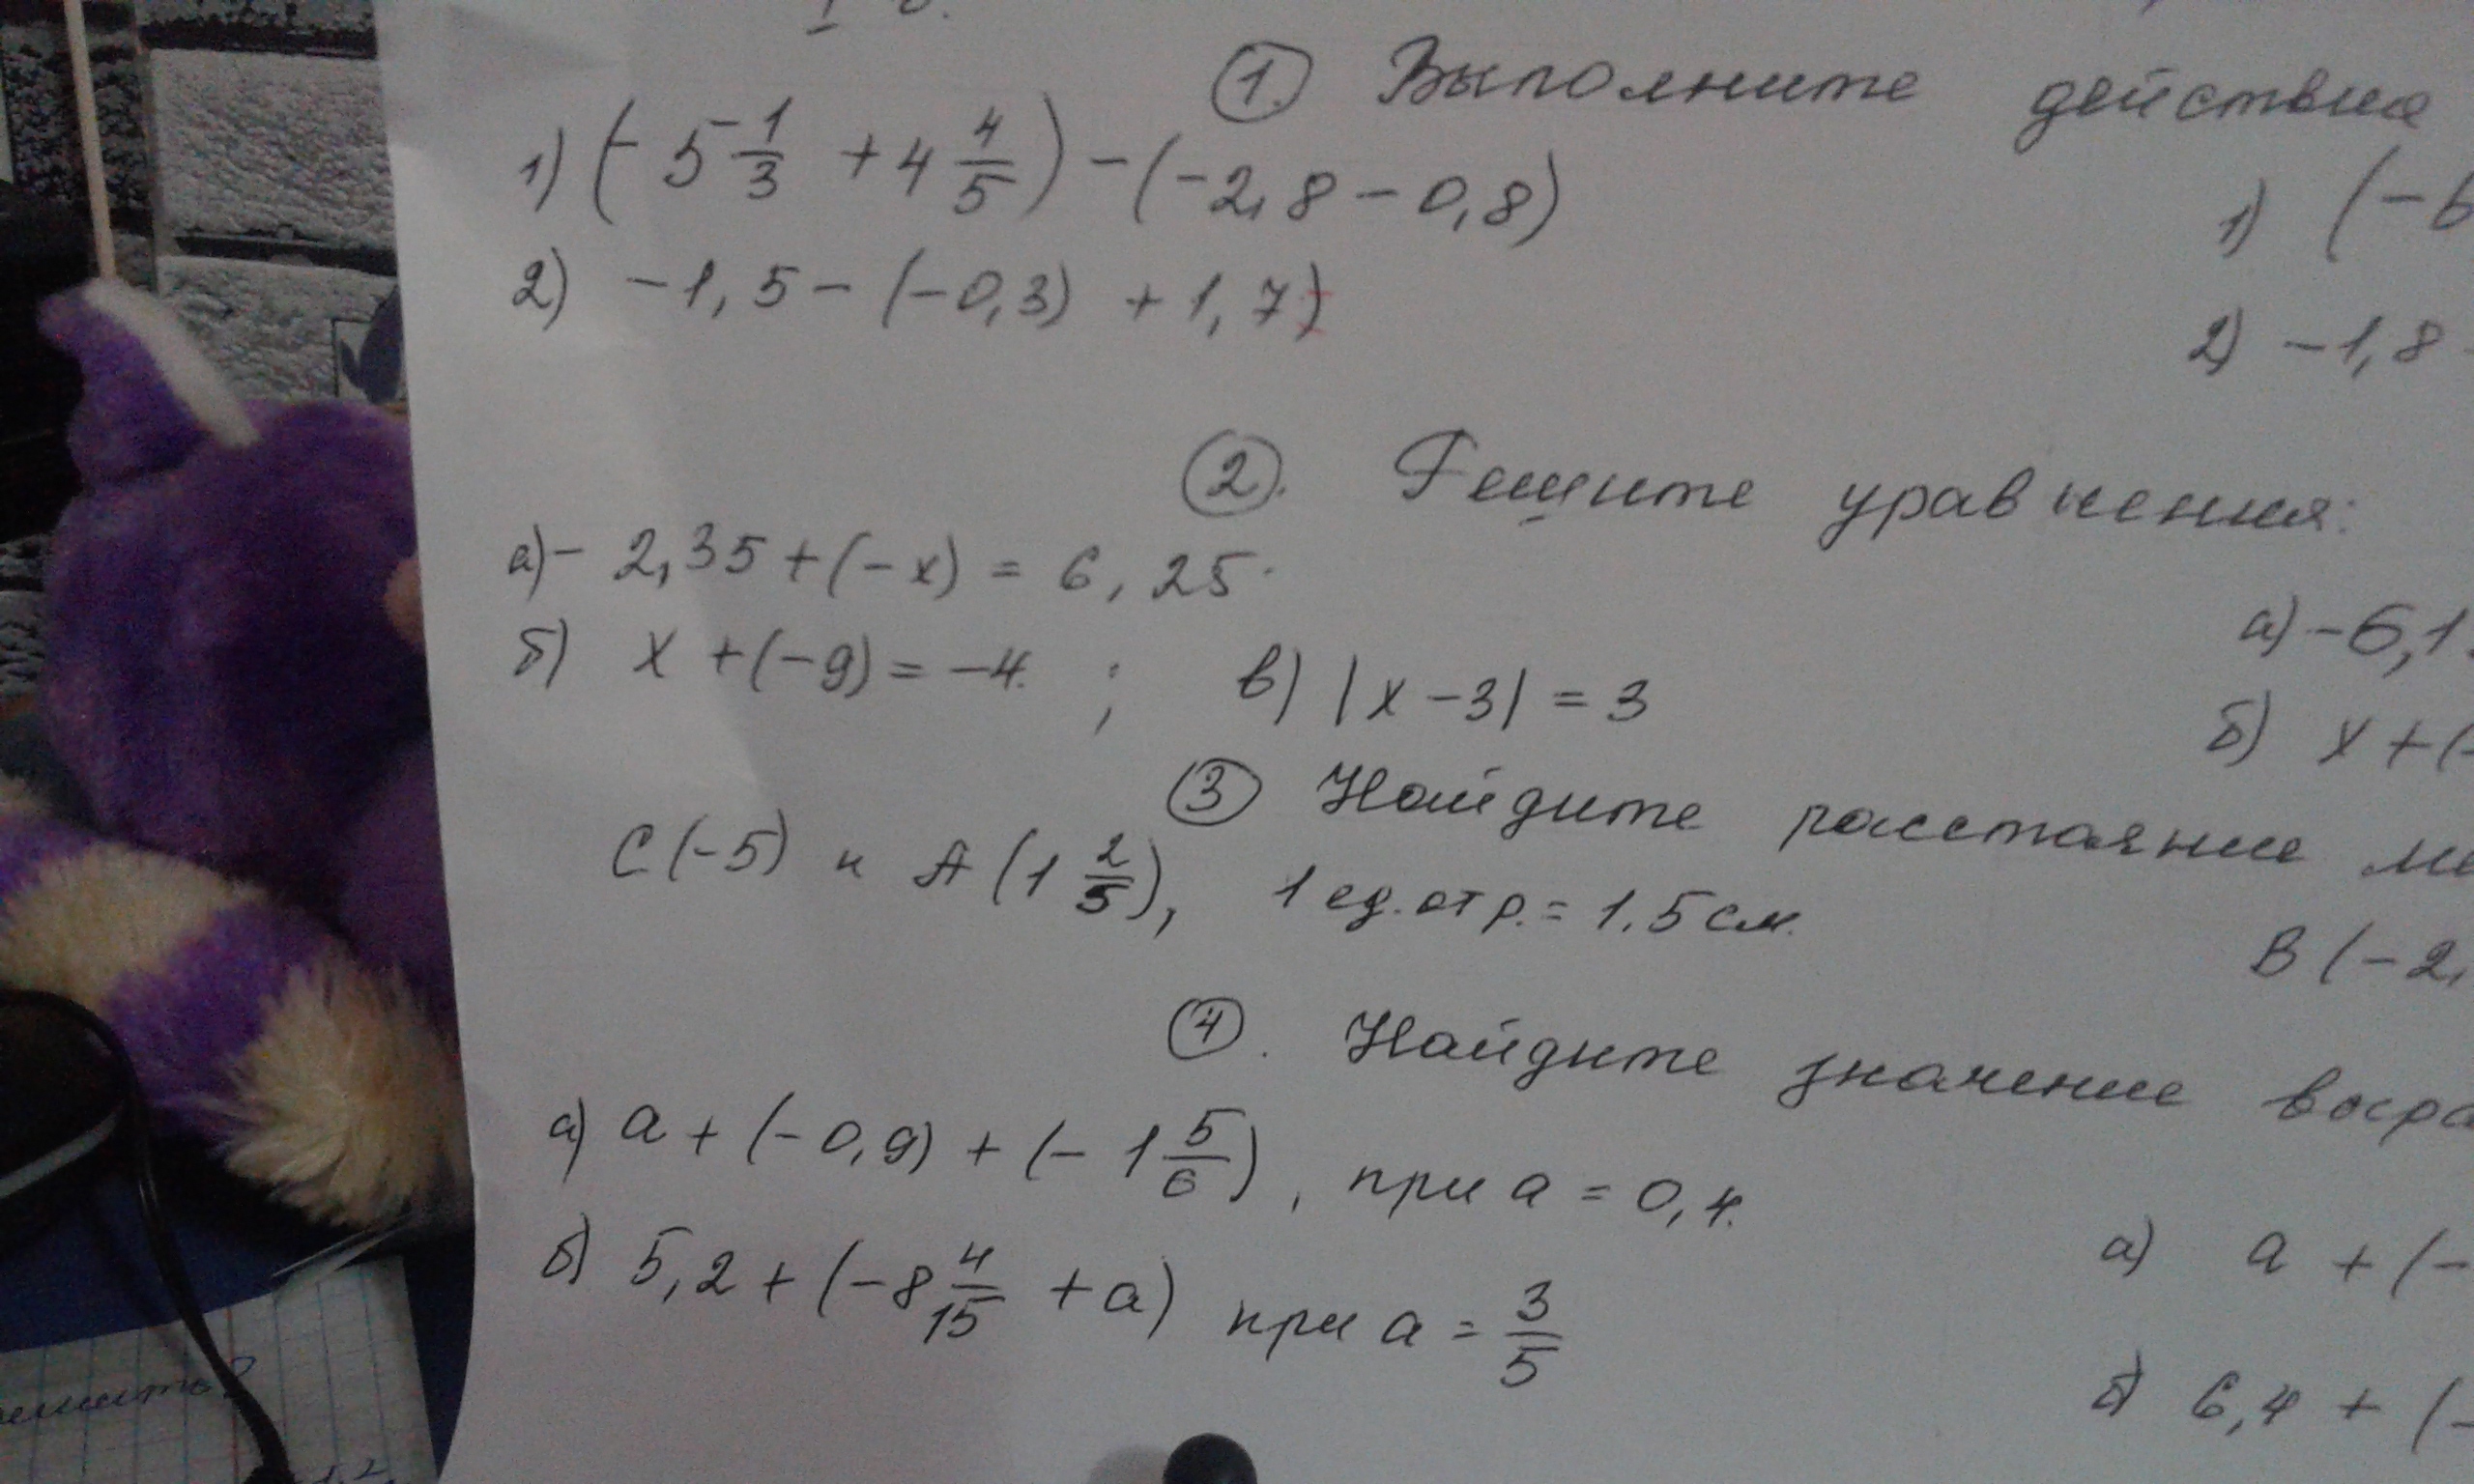 ① Выполните действия
1) (-5 1/3 + 4 4/5) - (-2,8 - 0,8)
1) (-6
2) -1,5 - (-0,3) + 1,7)
2) -1,8 -
②. Решите уравнения:
а) - 2,35 + (-x) = 6,25
а) -6,1
б) x + (-9) = -4. ; в) |x - 3| = 3
б) x + (-
③ Найдите расстояние ме
C(-5) и A(1 2/5), 1 ед. отр. = 1,5 см.
B(-2,
④. Найдите значение выра
а) a + (-0,9) + (-1 5/6), при a = 0,4.
а) a + (-
б) 5,2 + (-8 4/15 + a) при a = 3/5
б) 6,4 + (-